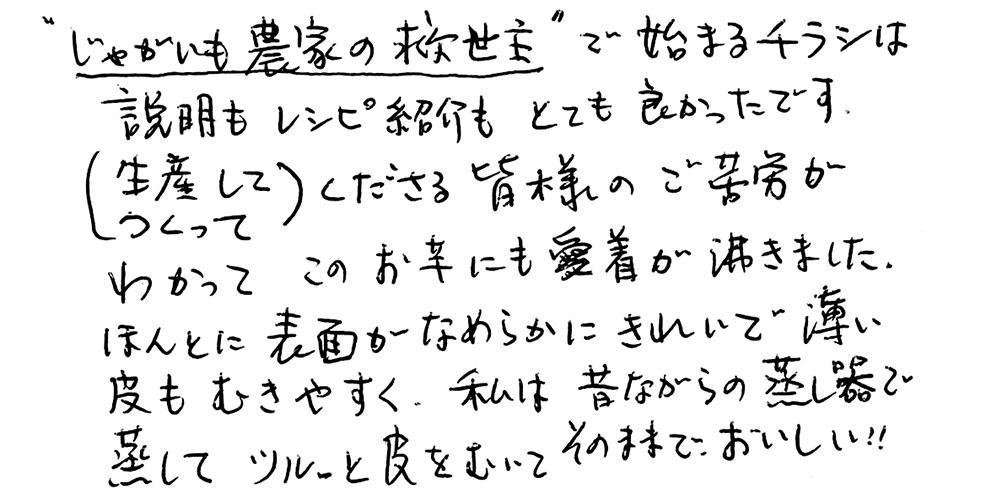 "じゃがいも農家の救世主"で始まるチラシは
説明もレシピ紹介もとても良かったです.
(生産して
つくって)くださる皆様のご苦労が
わかって このお芋にも愛着が沸きました.
ほんとに表面がなめらかにきれいで薄い
皮もむきやすく. 私は昔ながらの蒸し器で
蒸して ツルーと皮をむいてそのままで.おいしい!!